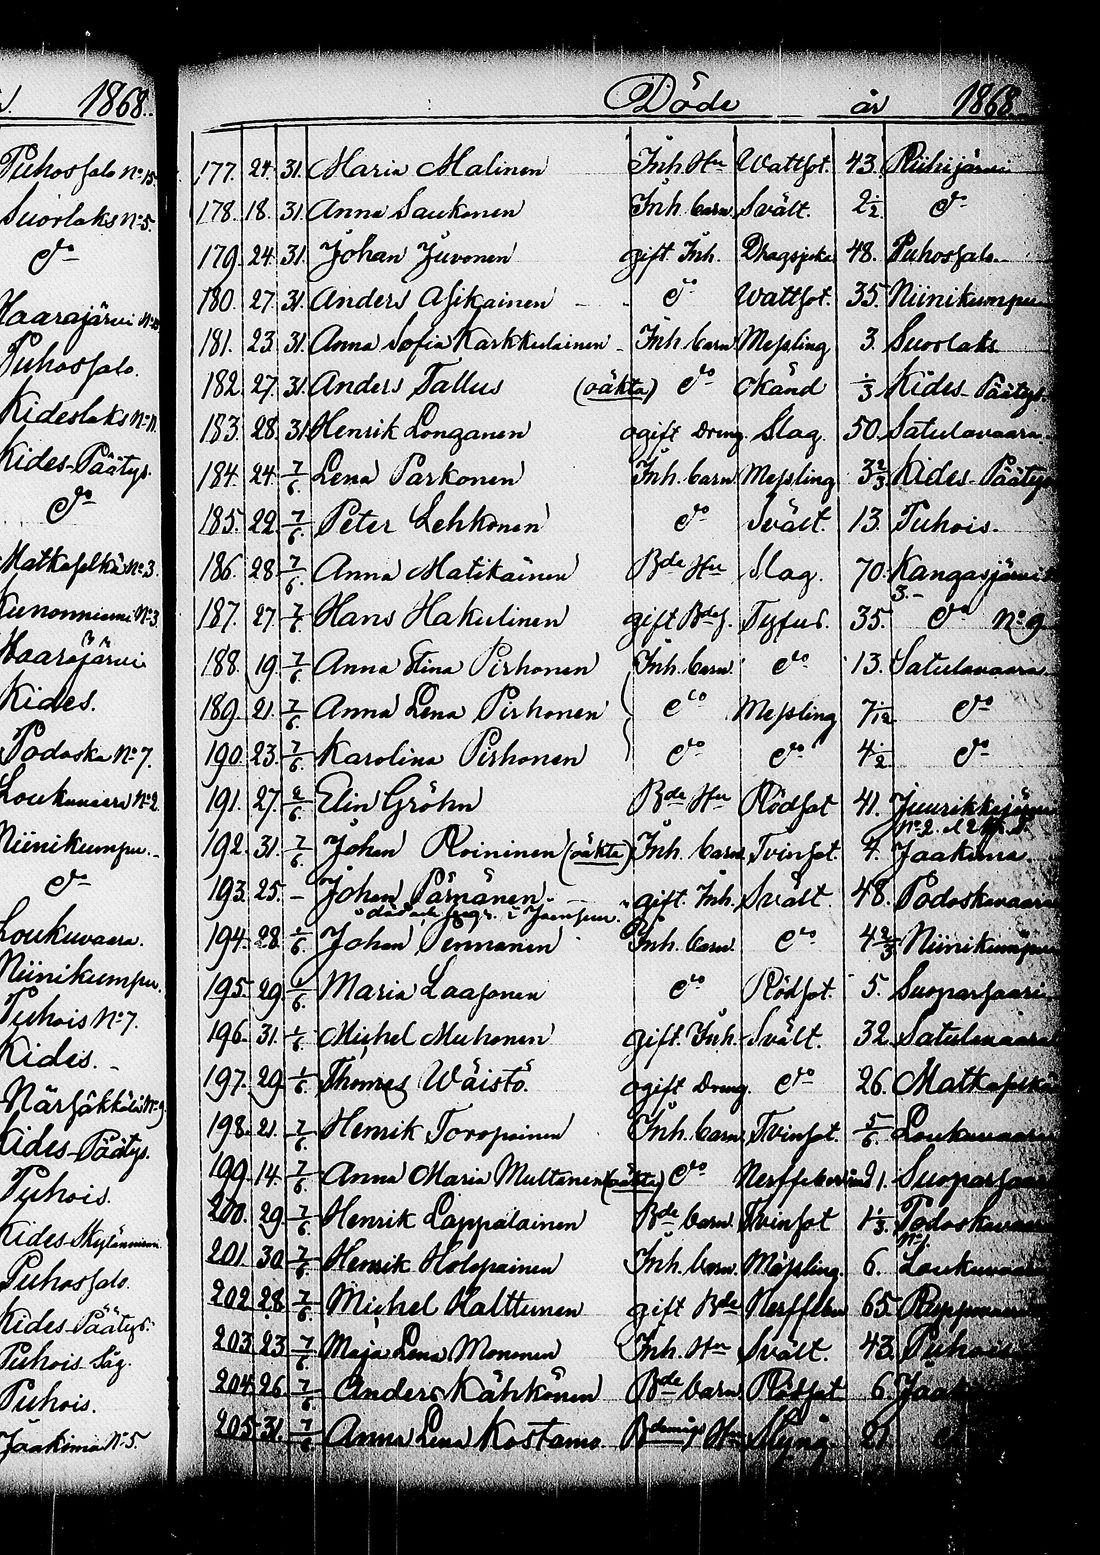 1868.
Puhossalo No 15.
Suorlaks No 5.
do
Haarajärvi
Puhossalo.
Kideslaks No 11.
Kides-Päätys.
do
Matkaselkä No 3.
Kunonniemi No 3.
Haarajärvi
Kides.
Podoska No 7.
Loukuvaara No 2.
Niinikumpu.
do
Loukuvaara.
Niinikumpu.
Puhois No 7.
Kides.
Närsäkkälä No 9
Kides-Päätys.
Puhois.
Kides
Puhossalo.
Kides-Päätys.
Puhois Såg.
Puhois.
Jaakima No 5.
Döde år 1868.
177. 24. 31. Maria Malinen Inh. Hu Wattsot. 43. Riihijärvi
178. 18. 31. Anna Saukonen Inh. barn. Svält. 2 1/2 do
179. 24. 31. Johan Juvonen gift Inh. Dragsjuka 48. Puhossalo.
180. 27. 31. Anders Asikainen do Wattsot. 35. Niinikumpu
181. 23. 31. Anna Sofia Karkkulainen Inh. barn Messling 3. Suorlaks
182. 27. 31. Anders Tallus (oäkta) do Okänd 1/3 Kides-Päätys.
183. 28. 31. Henrik Longanen ogift Dreng. Slag. 50. Satulavaara.
184. 24. 7/6 Lena Parkonen Inh. barn Messling 3 2/3 Kides-Päätys
185. 22. 7/6 Peter Lehkonen do Svält. 13. Puhois.
186. 28. 7/6 Anna Matikainen Bde Hu Slag. 70. Kangasjärvi 3.
187. 27. 7/6 Hans Hakulinen gift Bde Tyfus. 35. do No 9
188. 19. 7/6 Anna Stina Pirhonen Inh. barn. do 13. Satulavaara
189. 21. 7/6 Anna Lena Pirhonen do Messling 7/12 do
190. 23. 7/6 Karolina Pirhonen do do 4 1/2 do
191. 27. 7/6 Elin Gröhn Bde Hu Rödsot 41. Juurikkajärvi
No 2.
192. 31. 7/6 Johan Roininen (oäkta) Inh. barn. Tvinsot. 4. Jaakima.
193. 25. – Johan Pärnänen. gift Inh. Svält. 48. Podoskavaara
dödade i Joensuu.
194. 28. 7/6 Johan Pennanen Inh. barn. do 4 2/3 Niinikumpu
195. 29. 7/6 Maria Laasonen do Rödsot. 5. Suoparsaari
196. 31. 7/6 Michel Muhonen gift. Inh. Svält. 32. Satulavaara
197. 29. 7/6 Thomas Wäistö. ogift Dreng. do 26. Matkaselkä
198. 21. 7/6 Henrik Toropainen Inh. barn. Tvinsot. 5/6 Loukuvaara
199. 14. 7/6 Anna Maria Multanen (oäkta) do Nerffeber 1. Suoparsaari
200. 29. 7/6 Henrik Lappalainen Bde barn. Tvinsot 1 1/3 Podoskavaara
201. 30. 7/6 Henrik Holopainen Inh. barn. Mässling. 6. Loukuvaara
202. 28. 7/6 Michel Halttunen gift Bde Nerffeber 65.
203. 23. 7/6 Maja Lena Mononen Inh. Hu Svält. 43. Puhois
204. 26. 7/6 Anders Kähkönen Bde barn Rödsot 6.
205. 31. 7/6 Anna Lena Kostamo Hu 21